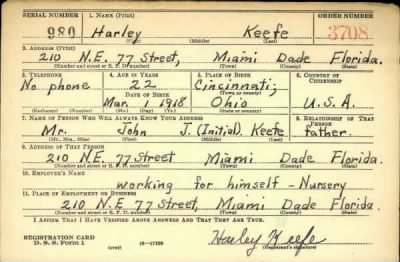 SERIAL NUMBER 1. NAME (Print) ORDER NUMBER
980 Harley Keefe 3708
(First) (Middle) (Last)
2. ADDRESS (Print)
210 N.E. 77 Street, Miami Dade Florida.
(Number and street or R. F. D. number) (Town) (County) (State)
3. TELEPHONE 4. AGE IN YEARS 5. PLACE OF BIRTH 6. COUNTRY OF CITIZENSHIP
No phone 22 Cincinnati;
DATE OF BIRTH (Town or county)
Mar. 1, 1918 Ohio U.S.A.
(Exchange) (Number) (Mo.) (Day) (Yr.) (State or country)
7. NAME OF PERSON WHO WILL ALWAYS KNOW YOUR ADDRESS 8. RELATIONSHIP OF THAT PERSON
Mr. John J. (Initial). Keefe father.
(Mr., Mrs., Miss) (First) (Middle) (Last)
9. ADDRESS OF THAT PERSON
210 N.E. 77 Street Miami Dade Florida.
(Number and street or R. F. D. number) (Town) (County) (State)
10. EMPLOYER'S NAME
working for himself - Nursery
11. PLACE OF EMPLOYMENT OR BUSINESS
210 N.E. 77 Street Miami Dade Florida.
(Number and street or R. F. D. number) (Town) (County) (State)
I AFFIRM THAT I HAVE VERIFIED ABOVE ANSWERS AND THAT THEY ARE TRUE.
REGISTRATION CARD
D. S. S. Form 1 (over) 16-17105 Harley Keefe
(Registrant's signature)